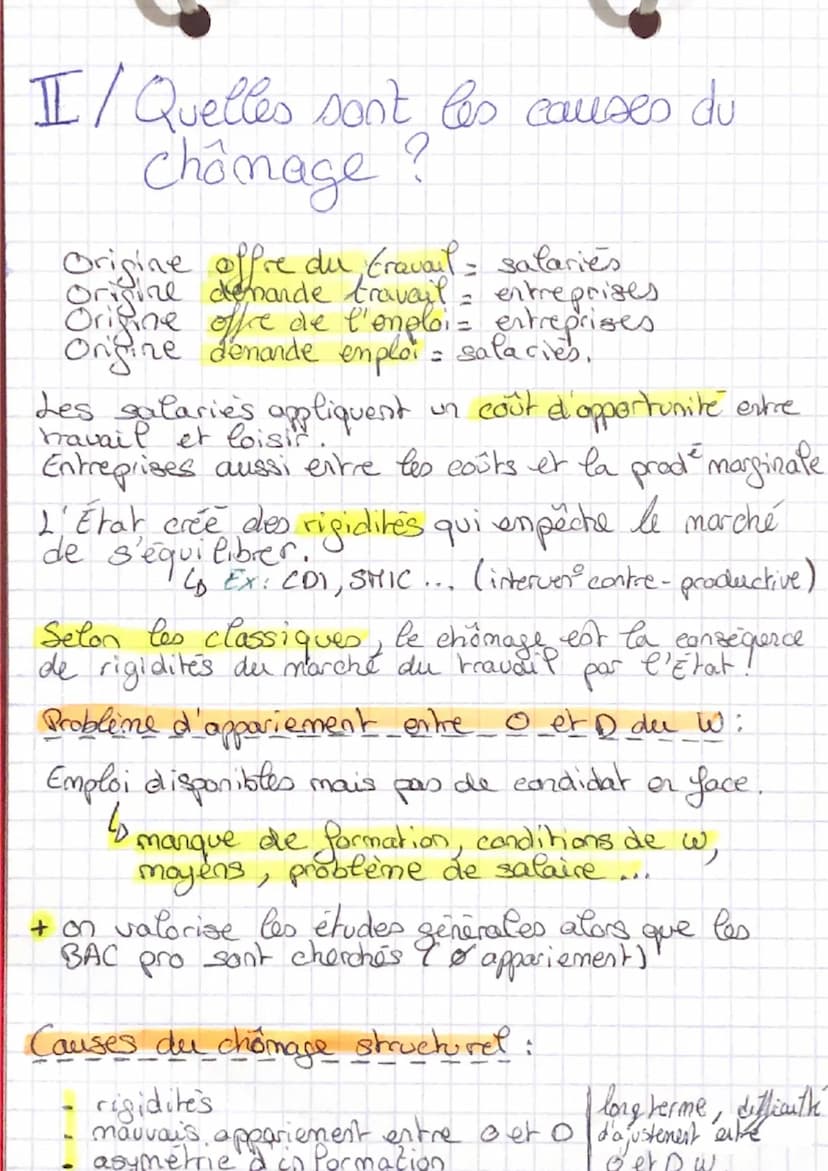 II/ Quelles sont les causes du
chômage ?
Origine offre du travail = salariés
Origine demande travail = entreprises
Origine offre de l'emploi = entreprises
Origine demande emploi = salariés.
Les salariés appliquent un coût d'opportunité entre
travail et loisir.
Entreprises aussi entre les coûts et la prodé marginale
L'État créé des rigidités qui empêche le marché
de s'équilibrer.
↳ Ex: CDI, SMIC ... (interven° contre-productive)
Selon les classiques, le chômage est la conséquence
de rigidités du marché du travail par l'État !
Problème d'appariement entre O et D du W :
Emploi disponibles mais pas de candidat en face.
↳ manque de formation, conditions de W,
moyens, problème de salaire ...
+ on valorise les études générales alors que les
BAC pro sont cherchés ( ø appariement)
Causes du chômage structurel :
- rigidités
- mauvais appariement entre O et D
- asymétrie d'information
long terme, difficulté
d'ajustement entre
O et D W